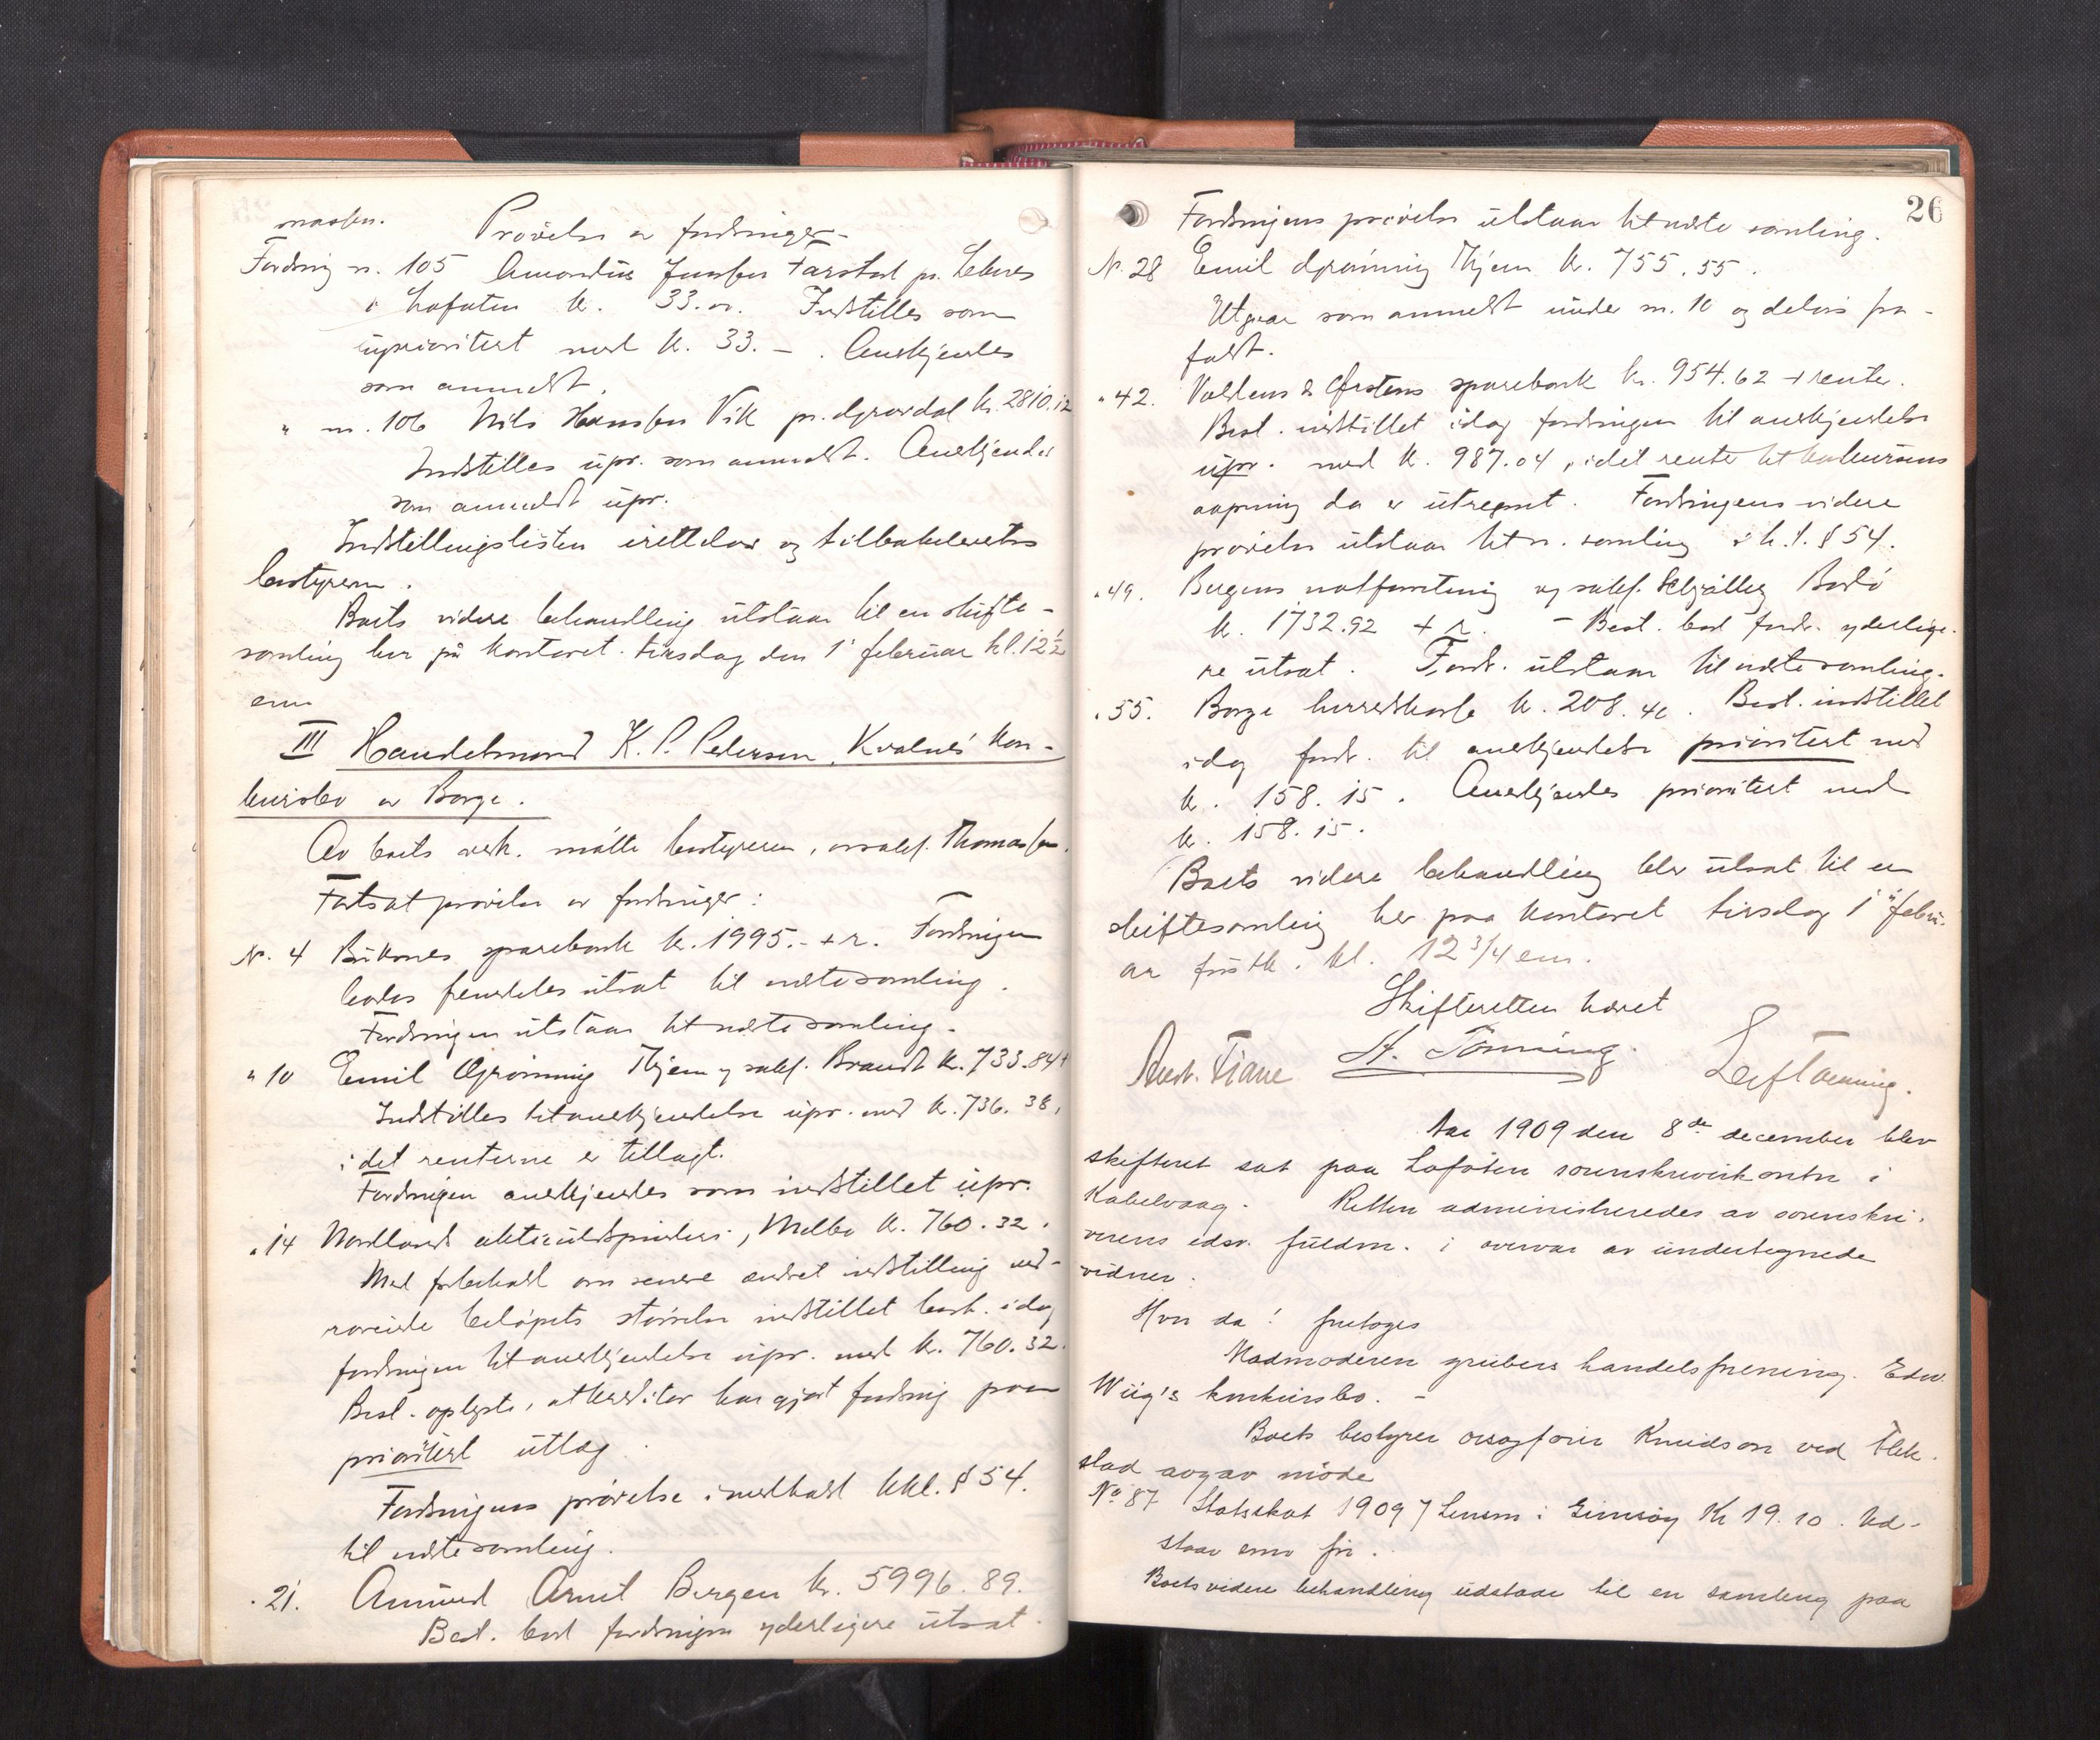 massen.
Prøvelse av fordringer.
Fordring n. 105 Amandus Jonassen Farstad pr. Leknes
i Lofoten kr. 33.00. Indstilles som
uprioritert med kr. 33.–. Anerkjendes
som anmeldt.
" n. 106 Nils Hansen Vik pr. Gravdal kr. 2810.12
Indstilles upr. som anmeldt. Anerkjendes
som anmeldt upr.
Indstillingslisten irettelas og tilbakelevertes
bestyreren.
Boets videre behandling utstaar til en skifte-
samling her på kontoret tirsdag den 1 februar kl. 12½
em.
III Handelsmand K. P. Pedersen, Kvalnes kon-
kursbo av Borge.
Av boets vedk. møtte bestyreren, orsakf. Thomassen.
Fortsat prøvelse av fordringer:
N. 4 Buksnes sparebank kr. 1995.- + r. Fordringen
bedes fremdeles utsat til næste samling.
Fordringen utstaar til næste samling.
" 10 Emil Grønning Hjem og sakf. Brandt kr. 733.84 +
Indstilles til anerkjendelse upr. med kr. 736.38,
idet renterne er tillagt.
Fordringen anerkjendes som indstillet upr.
" 14 Nordlands aktieuldspinderi, Melbo kr. 760.32.
Med forbehold om senere endret indstilling ved-
rørende beløpets størrelse indstillet best. idag
fordringen til anerkjendelse upr. med kr. 760.32.
Best. oplyste, at kreditor har gjort fordring paa
prioritert utlæg.
Fordringens prøvelse i medhold kkl. § 54.
til næste samling.
" 21. Amund Bergen kr. 5996.89.
Best. bad fordringen yderligere utsat.
26
Fordringens prøvelse utstaar til næste samling.
N. 28 Emil Grønning Hjem kr. 755.55.
Utgaar som anmeldt under n. 10 og delvis fra-
faldt.
" 42. Voldens & Ørstens sparebank kr. 954.62 + renter.
Best. indstillet idag fordringen til anerkjendelse
upr. med kr. 987.04, idet rente til konkursens
aapning da er utregnet. Fordringens videre
prøvelse utstaar til n. samling i h. t. § 54.
" 49. Bergens notforretning og sakf. Bodø
kr. 1732.92 + r. – Best. bad fordr. yderlige-
re utsat. Fordr. utstaar til næste samling.
" 55. Borge herredskasse kr. 208.40. Best. indstillet
idag fordr. til anerkjendelse prioritert med
kr. 158.15. Anerkjendes prioritert med
kr. 158.15.
Boets videre behandling blev utsat til en
skiftesamling her paa kontoret tirsdag 1 febru-
ar førstk. kl. 12 3/4 em.
Skifteretten hævet
A. Tønning.
Leif Tønning.
Aar 1909 den 8de december blev
skifteret sat paa Lofoten sorenskriverkontor i
Kabelvaag. Retten administreredes av sorenskri-
verens edsv. fuldm. i overvær av undertegnede
vidner.
Hvor da! foretoges
Madmoderen grubers handelsforening. Edw.
Wiig's konkursbo. –
Boets bestyrer orsagfører Knudson ved Flek-
stad avgav møde
No 87 Statsskat 1909 / Lensm i Gimsøy Kr 19.10. Ud-
staar
Boets videre behandling udstaar til en samling paa